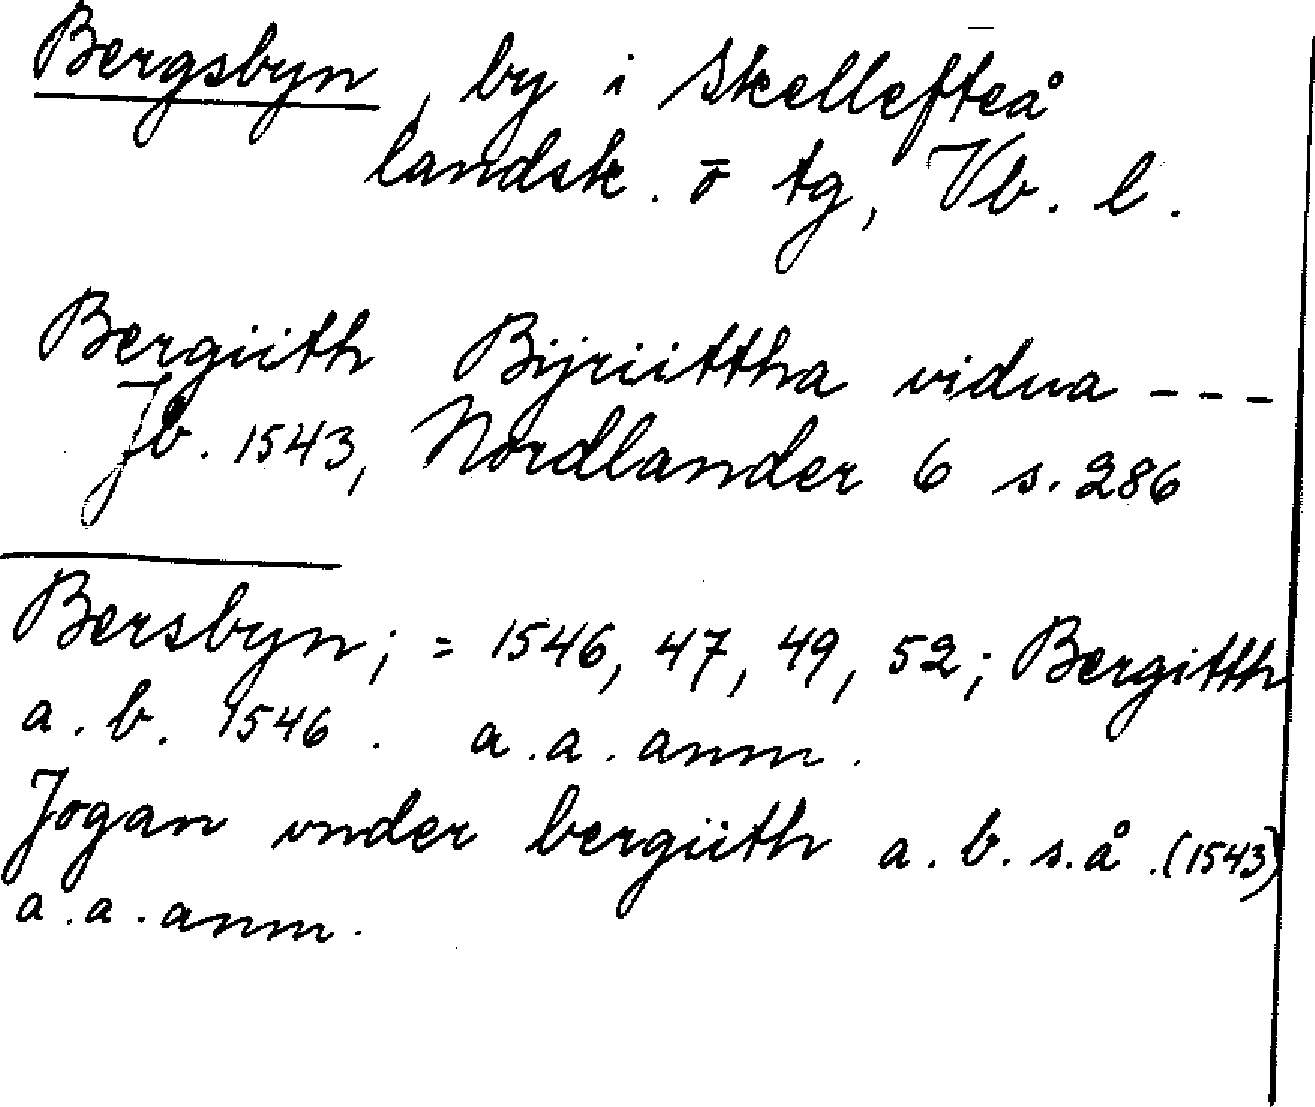 Bergsbyn, by i Skellefteå
landsk. o tg, Vb. l.
Bergiith Bijriittha vidua - - -
Jb. 1543, Nordlander 6 s. 286
Bersbyn; = 1546, 47, 49, 52; Bergitth
a. b. 1546. a. a. anm.
Jogan vnder bergiith a. b. s. å. (1543)
a. a. anm.